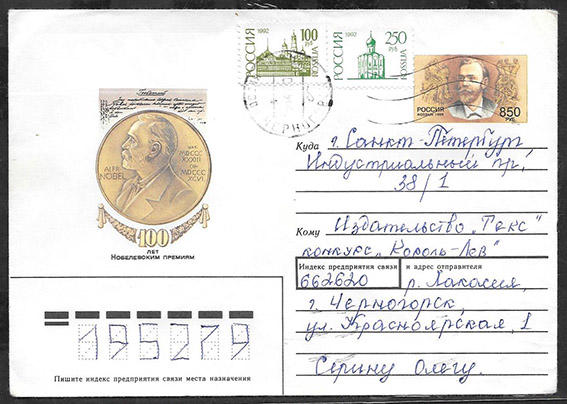 РОССИЯ 1992 100 РУБ ROSSIJA
РОССИЯ 1992 250 РУБ ROSSIJA
РОССИЯ
850 РУБ
Testament
ALFR. NOBEL
NAT. MDCCC XXXIII
OB. MDCCC XCVI
100
ЛЕТ
НОБЕЛЕВСКИМ ПРЕМИЯМ
Куда г. Санкт-Петербург,
Индустриальный пр,
38/1
Кому Издательство „Текс"
конкурс „Король-Лев"
Индекс предприятия связи и адрес отправителя
662620 р. Хакасия,
г. Черногорск,
ул. Красноярская, 1
Серину Олегу.
195279
Пишите индекс предприятия связи места назначения